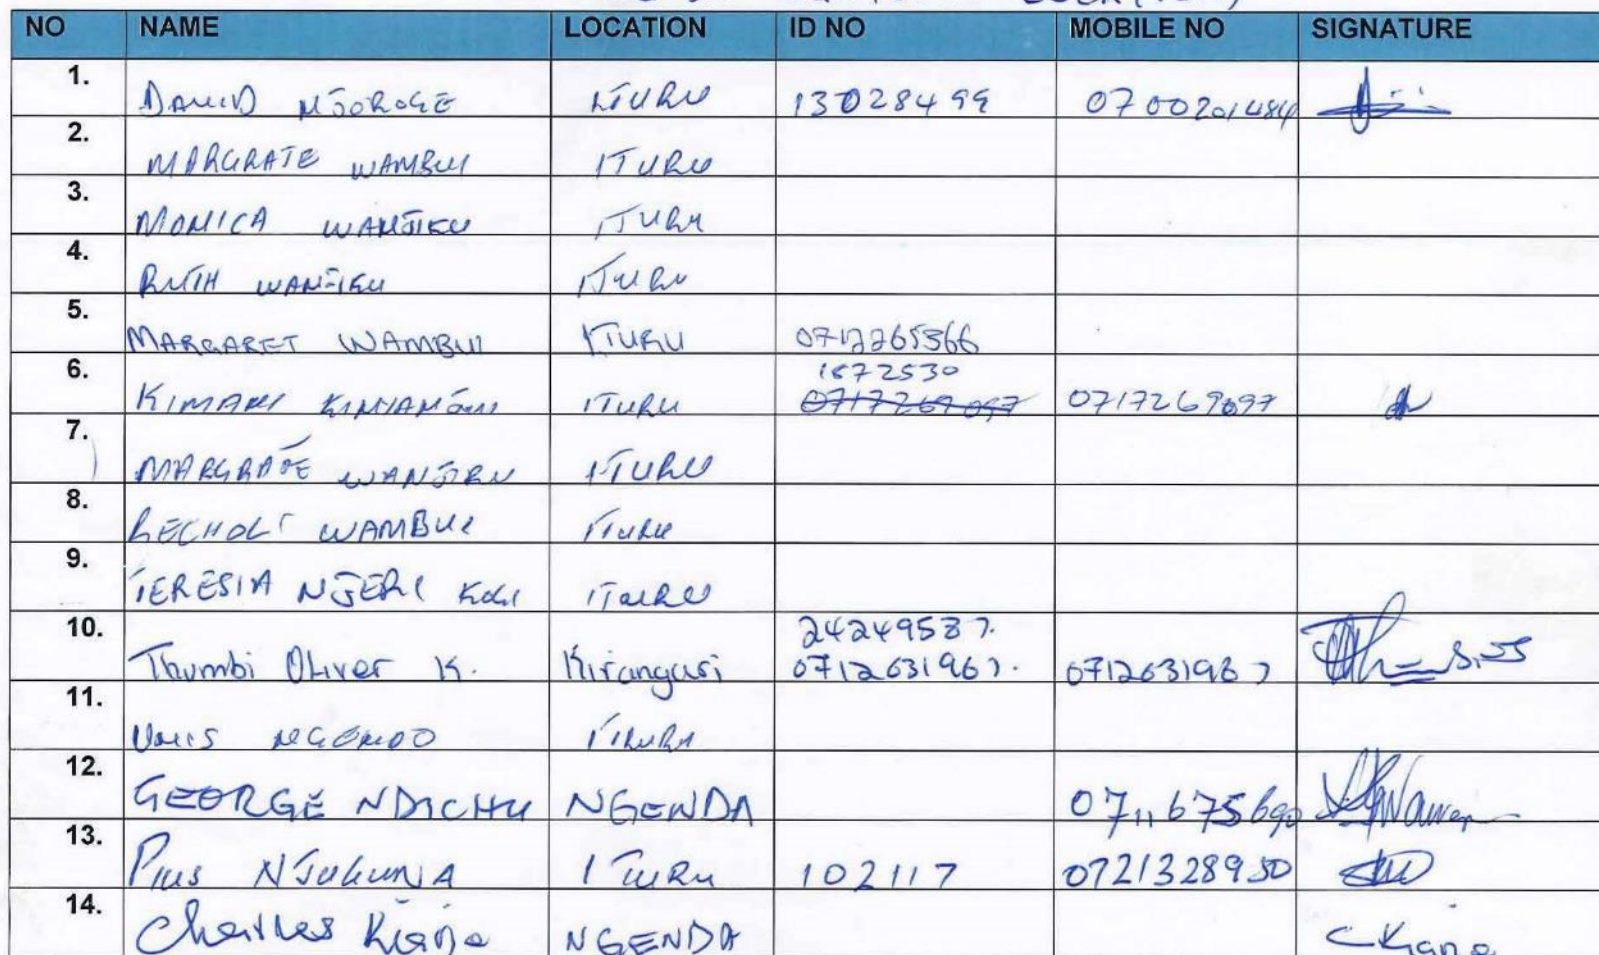 NO NAME LOCATION ID NO MOBILE NO SIGNATURE
1. DAVID NJOROGE ITURU 13028499 0700201484
2. MARGRATE WAMBUI ITURU
3. MONICA WANJIKU ITURU
4. RUTH WANJIKU ITURU
5. MARGARET WAMBUI ITURU 0712265366
6. 1672530
KIMANI ITURU 0717269097 0717269097
7. MARGRATE WANJIRU ITURU
8. WAMBUI ITURU
9. TERESIA NJERI ITURU
10. 24249587.
Thumbi Oliver K. Kirangari 0712631967. 0712631967
11. NGENDO
12. GEORGE NDICHU NGENDA 0711675690
13. Pius NJUGUNA ITURU 102117 0721328950
14. Charles Kiane NGENDA CKiane